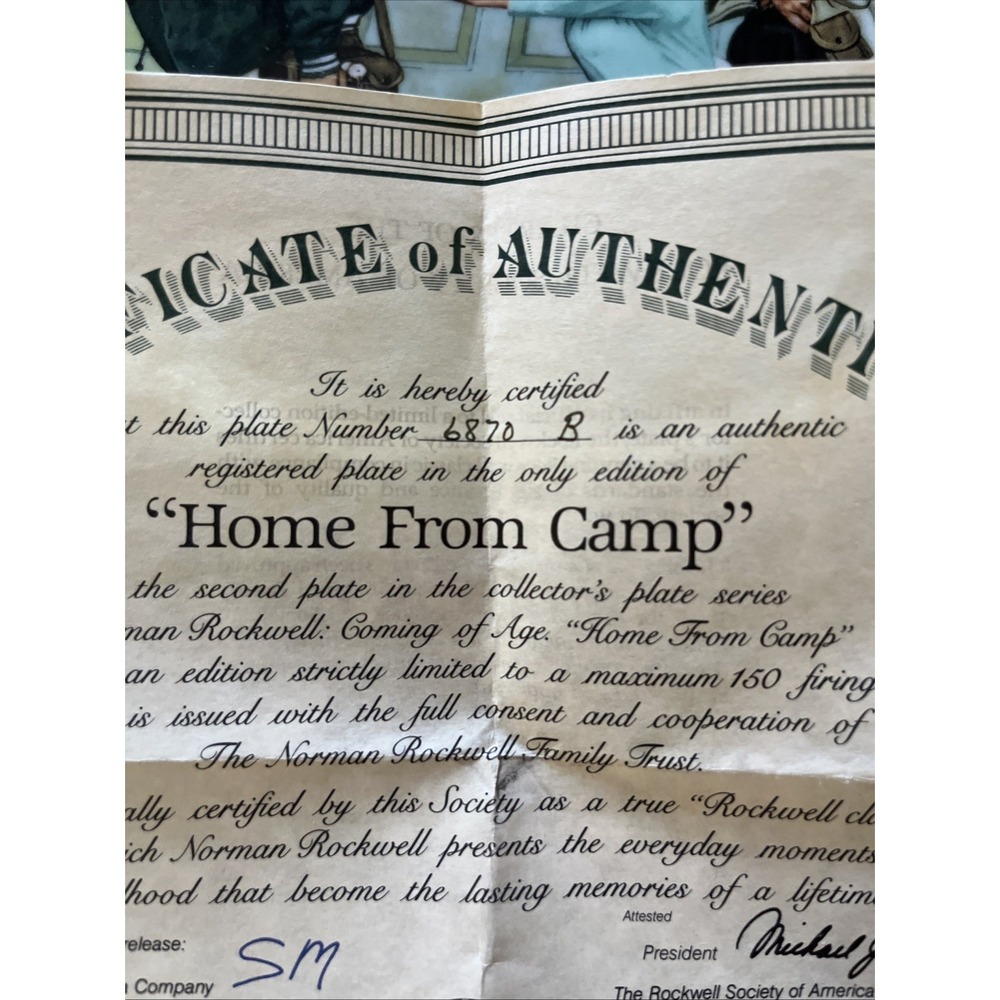 ICATE of AUTHENTI
It is hereby certified
t this plate Number 6870 B is an authentic
registered plate in the only edition of
“Home From Camp”
the second plate in the collector's plate series
man Rockwell: Coming of Age. “Home From Camp”
an edition strictly limited to a maximum 150 firing
is issued with the full consent and cooperation of
The Norman Rockwell Family Trust.
ally certified by this Society as a true “Rockwell cla
ich Norman Rockwell presents the everyday moments
hood that become the lasting memories of a lifetim
Attested
release: SM
President Michael J
Company
The Rockwell Society of America